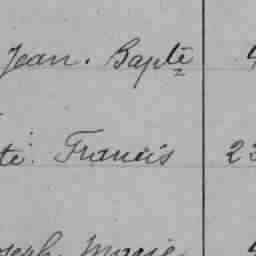 Jean. Bapte
te. Francis 23
oseph Marie